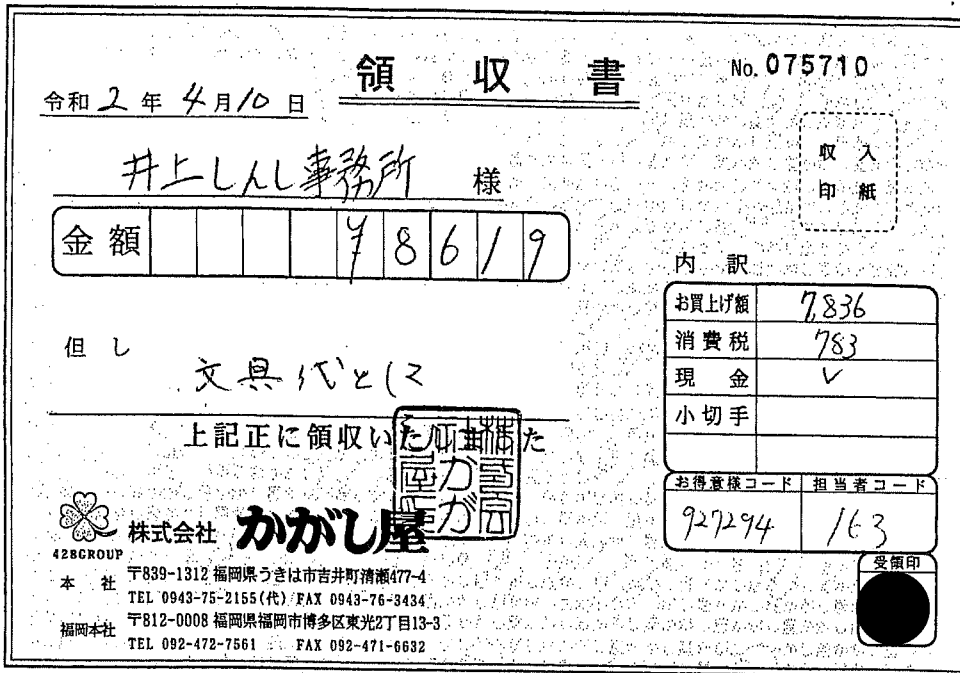 領収書
No. 075710
令和2年4月10日
井上しんし事務所 様
収入
印紙
金額 ¥8619
内訳
お買上げ額 7,836
消費税 783
現金 ✓
小切手
但し
文具代として
上記正に領収いたしました
お得意様コード 担当者コード
927294 163
受領印
428GROUP
株式会社 かがし屋
本社 〒839-1312 福岡県うきは市吉井町清瀬477-4
TEL 0943-75-2155(代) FAX 0943-76-3434
福岡本社 〒812-0008 福岡県福岡市博多区東光2丁目13-3
TEL 092-472-7561 FAX 092-471-6632